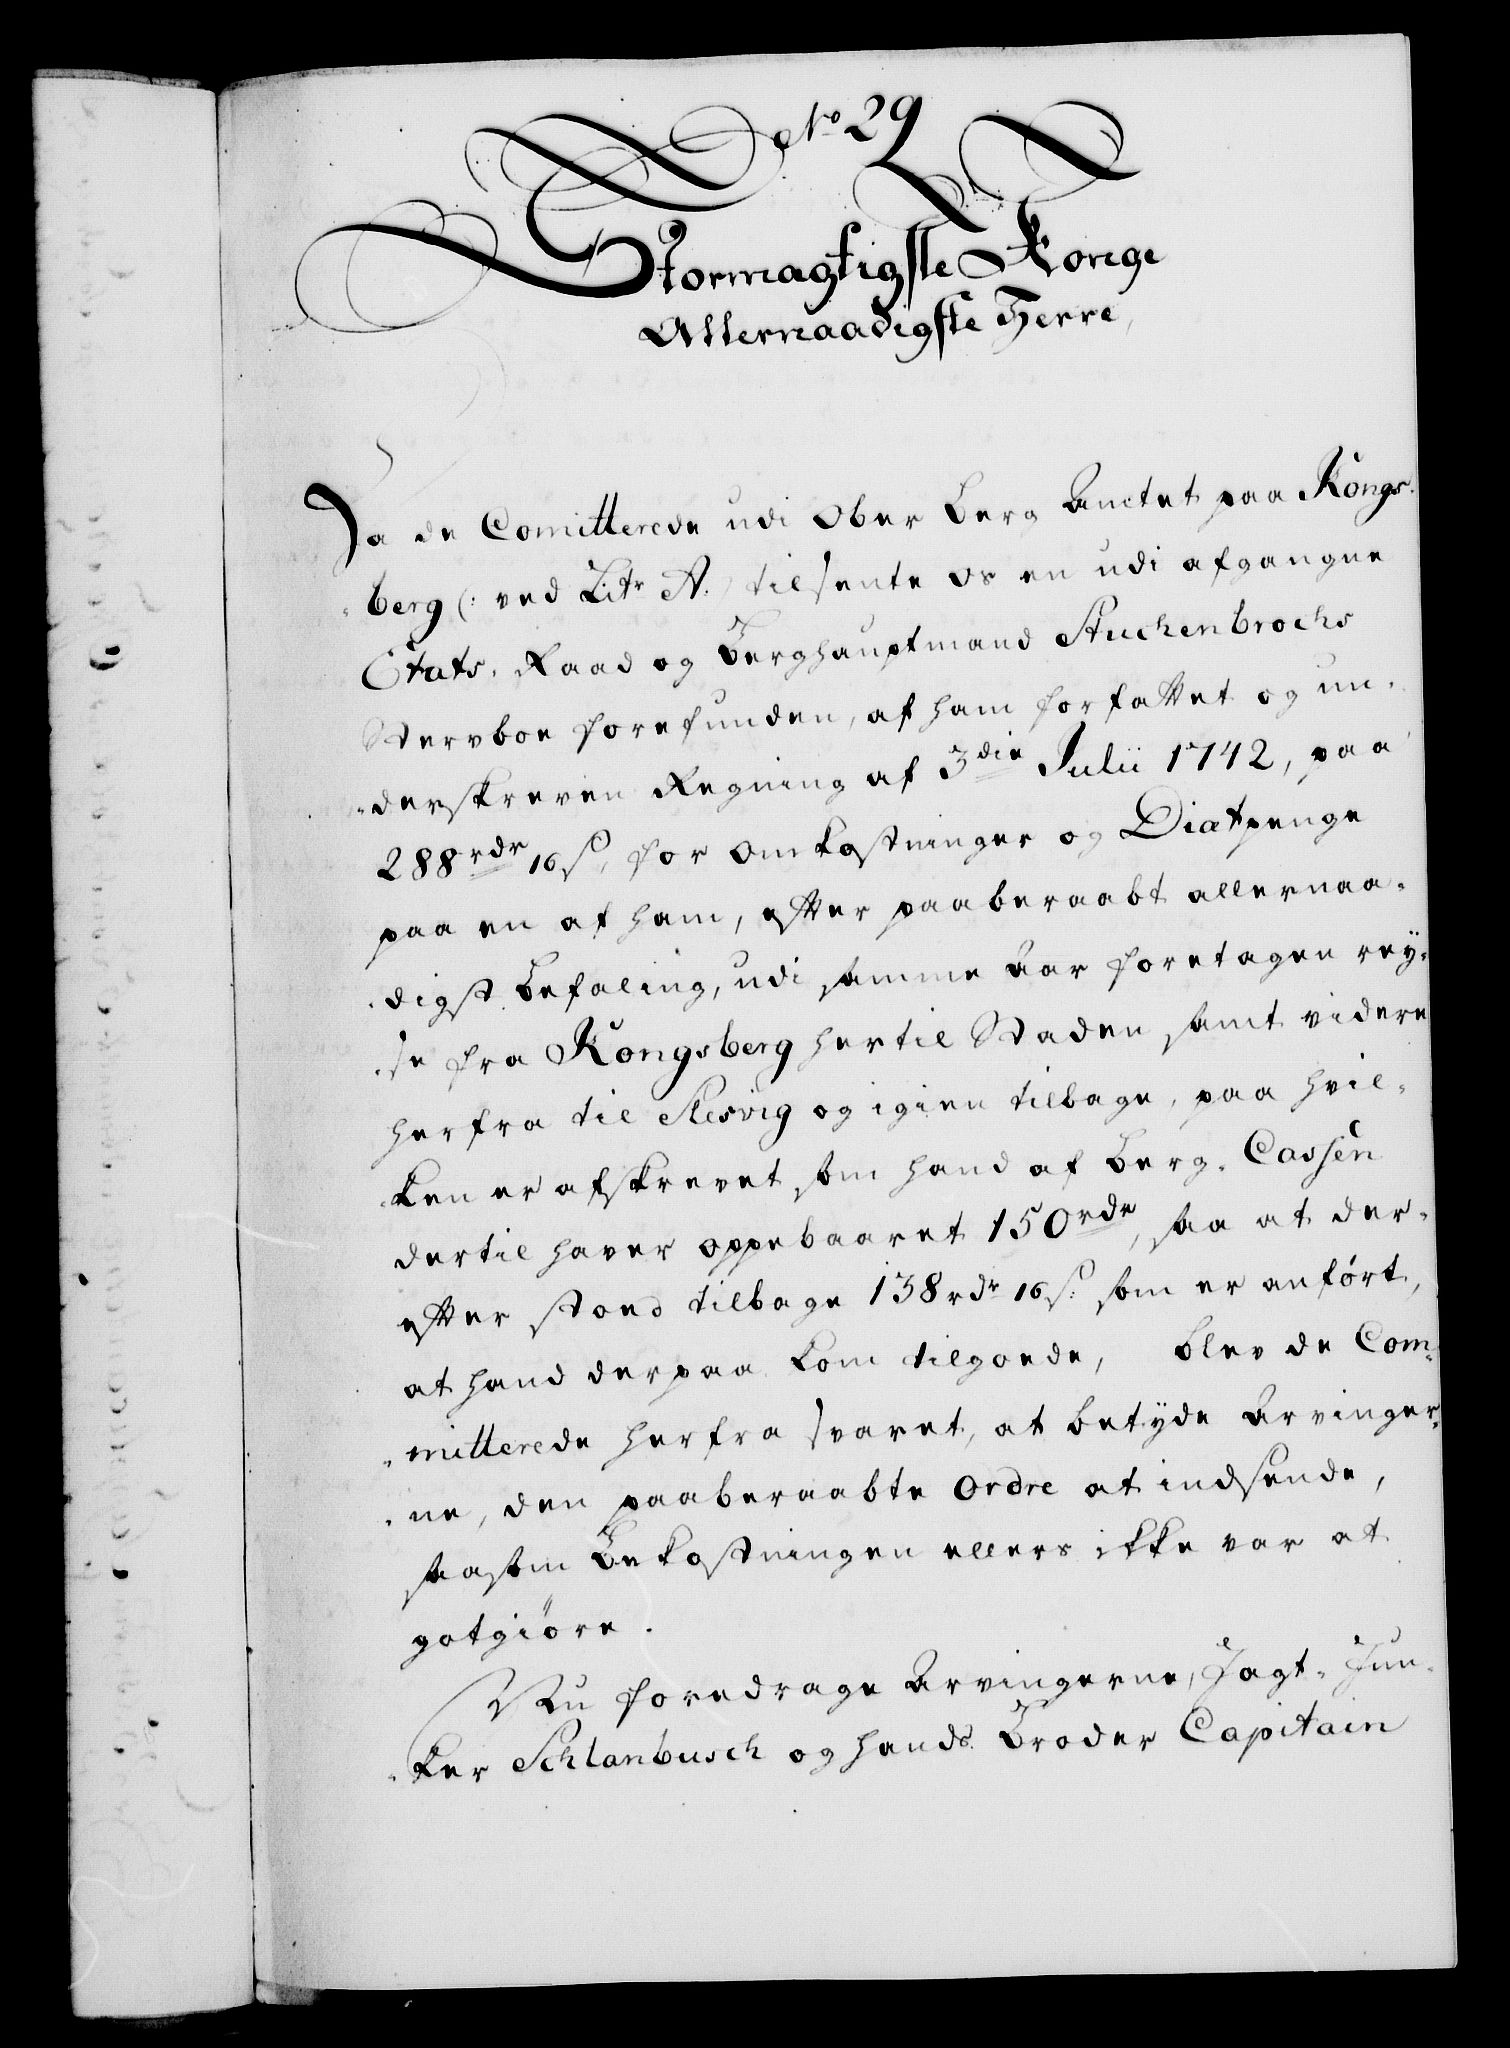 No 29
Stormægtigste Konge
Allernaadigste Herre,
Da de Comitterede udi Ober Berg Amtet paa Kongs-
berg (: ved Litr A. ) tilsente os en udi afgangne
Etats-Raad og Berghauptmand Stuckenbrochs
Stervboe forefunden, af ham forfattet og un-
-derskreven Regning af 3die Julii 1742, paa
288 rdr 16 s, for Omkostninger og Diætpenge
paa en af ham, efter paaberaabt allernaa-
-digst Befaling, udi samme Aar foretagen rey-
-se fra Kongsberg hertil Staden samt videre
herfra til Slesvig og igien tilbage, paa hvil-
-ken er afskrevet som hand af Berg-Cassen
dertil haver oppebaaret 150 rdr, saa at der-
efter stoed tilbage 138 rdr 16 s. som er anført,
at hand derpaa kom tilgoede, blev de Com-
-mitterede herfra svaret, at betyde Arvinger-
-ne, den paaberaabte Ordre at indsende,
saasom Bekostningen ellers ikke var at
gotgiøre.
Nu foredrage Arvingerne, Jagt-Jun-
-ker Schlanbusch og hands Broder Capitain